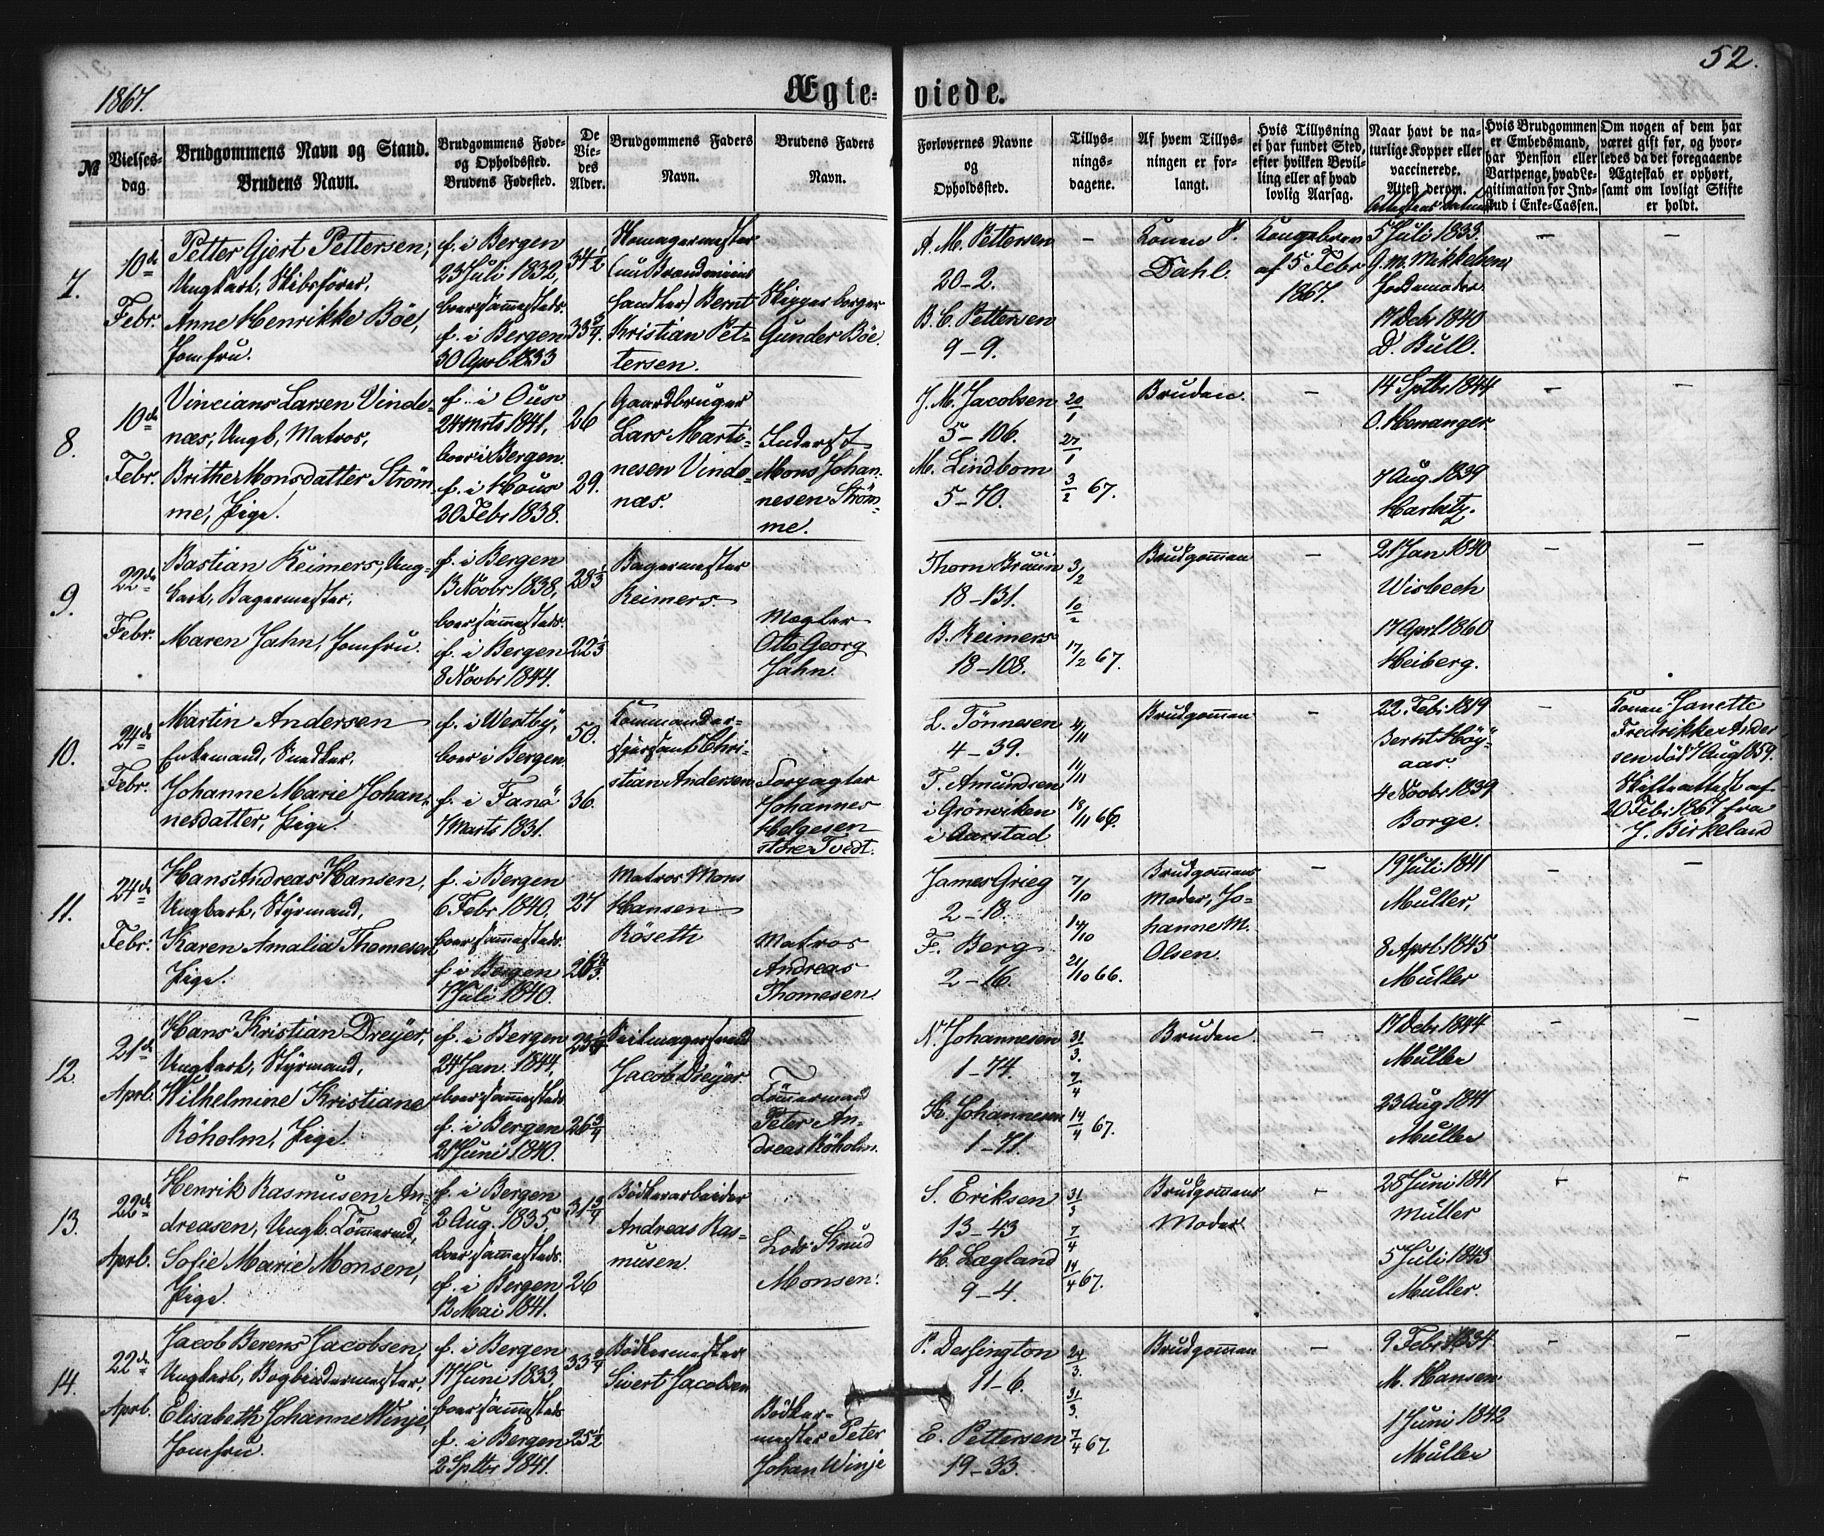 52.
1867.
Ægte- viede.
№
Vielses-
dag.
Brudgommens Navn og Stand.
Brudens Navn.
Brudgommens Føde-
og Opholdssted.
Brudens Fødested.
De
Vie-
des
Alder.
Brudgommens Faders
Navn.
Brudens Faders
Navn.
Forlovernes Navne
og
Opholdssted.
Tillys-
nings-
dagene.
Af hvem Tillys-
ningen er for-
langt.
Hvis Tillysning
ei har fundet Sted,
efter hvilken Bevil-
ling eller af hvad
lovlig Aarsag.
Naar havt de na-
turlige Kopper eller
vaccinerede.
Attest derom.
Hvis Brudgommen
er Embedsmand,
har Pension eller
Vartpenge, hvad Le-
gitimation for Ind-
skud i Enke-Cassen.
Om nogen af dem har
været gift før, og hvor-
ledes da det foregaaende
Ægteskab er ophørt,
samt om lovligt Skifte
er holdt.
7.
10de
Febr.
Petter Gjert Pettersen,
Ungkarl, Skibsfører,
Anne Henrikke Böe,
Jomfru.
f. i Bergen
23 Juli 1832,
boer sammesteds.
f. i Bergen
30 April 1833
34 1/2
33 3/4.
Skomagermester
(nu Brændeviins
handler) Bernt
Kristian Pet-
tersen.
Skipperborger
Gunder Böe.
A. M. Pettersen
20-2.
B. C. Pettersen
9-9.
–
Konen P.
Dahl.
Kongebrev
af 5 Febr
1867.
5 Juli 1833
G. M. Mikkelsen,
Jordemoder
17 Decbr 1840
D. Bull.
–
–
8.
10de
Febr.
Vincians Larsen Vinde-
næs, Ungk, Matros,
Brithe Monsdatter Ström-
me, Pige.
f. i Ous
24 Marts 1841,
boer i Bergen.
f. i Hous
20 Febr 1838.
26
29.
Gaardbruger
Lars Marti-
nesen Vinde-
næs.
Inderst
Mons Johan-
nesen Ström-
me.
J. M. Jacobsen
5-106.
M. Lindbom
5-70.
20/1
27/1
3/2 67.
Bruden.
–
14 Sptbr 1844
O. Henanger
7 Aug 1839
Harbitz.
–
–
9.
22de
Febr.
Bastian Reimers, Ung-
karl, Bagermester,
Maren Jahn, Jomfru.
f. i Bergen
13 Novbr 1838,
boer sammesteds.
f. i Bergen
8 Novbr 1844.
Bagermester
Reimers.
Mægler
Otto Georg
Jahn.
Thorn Bruün
18-131.
B. Reimers
18-108.
3/2
10/2
17/2 67.
Brudgommen
–
21 Jan 1840
Wisbech
17 Aprl 1860
Heiberg.
–
–
10.
24de
Febr.
Martin Andersen
Enkemand, Snedker,
Johanne Marie Johan-
nesdatter, Pige.
f. i Westby,
boer i Bergen
f. i Fanö
7 Marts 1831.
50.
36.
Kommandeer-
sjersant Chri-
stian Andersen
Torvagter
Johannes
Helgesen
store Tvedt.
L. Tönnesen
4-39.
T. Amundsen
i Grönviken
i Aarstad
4/11
11/11
18/11 66.
Brudgommen
–
22 Feb: 1819
Bernt Höy-
aas.
4 Novbr 1839
Borge.
–
Konen Janette
Fredrikke Ander
sen död 7 Aug 1859.
Skifteattest af
20 Feb: 1867 fra
J. Birkeland
11.
24de
Febr.
Hans Andreas Hansen,
Ungkarl, Styrmand,
Karen Amalia Thomesen
Pige.
f. i Bergen
6 Febr 1840,
boer sammesteds.
f. i Bergen
7 Juli 1840.
27
26 2/3.
Matros Mons
Hansen
Röseth
Matros
Andreas
Thomesen.
James Grieg
2-18.
F. Berg
2-16.
7/10
14/10
21/10 66.
Brudgommens
Moder, Jo-
hanne M.
Olsen.
–
19 Juli 1841
Müller,
8 Aprl 1845
Müller
–
–
12.
21de
Aprl.
Hans Kristian Dreyer,
Ungkarl, Styrmand,
Wilhelmine Kristiane
Röholm, Pige.
f. i Bergen
24 Jan. 1844,
boer sammesteds
f. i Bergen
21 Juni 1840.
26 3/4
Seilmagersvend
Jacob Dreyer.
Tömmermand
Peter An-
dreas Röholm.
N. Johannesen
1-74.
K. Johannesen
1-71.
31/3.
7/4
14/4 67.
Bruden.
–
17 Decbr 1844
Müller
23 Aug 1841
Müller
–
–
13.
22de
Aprl.
Henrik Rasmusen An-
dreasen, Ungk. Tömmermd,
Sofie Marie Monsen,
Pige.
f. i Bergen
2 Aug. 1835
boer sammesteds.
f. i Bergen
12 Mai 1841.
26
Bödkerarbeider
Andreas Ras-
musen.
Lods Knud
Monsen.
S. Eriksen
13-43
H. Lægland
9-4.
31/3
7/4
14/4 67.
Brudgommens
Moder.
–
28 Juni 1841
Müller
5 Juli 1843
Müller.
–
–
14.
22de
Aprl.
Jacob Berens Jacobsen,
Ungkarl, Bogbindermester,
Elisabeth Johanne Winje,
Jomfru.
f. i Bergen
17 Juni 1833,
boer sammesteds
f. i Bergen
2 Sptbr 1841.
33 3/4
25 1/2
Bödkermester
Sivert Jacobsen
Bödker-
mester Peter
Johan Winje
P. Dessington
11-6.
E. Pettersen
19-33.
24/3.
31/3.
7/4 67.
Brudgommen
–
9 Febr 1834
M. Hansen
1 Juni 1842
Müller
–
–